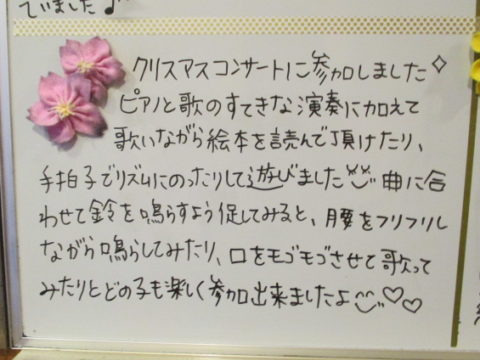 ていました♪
クリスマスコンサートに参加しました✧
ピアノと歌のすてきな演奏に加えて
歌いながら絵本を読んで頂けたり、
手拍子でリズムにのったりして遊びました 曲に合
わせて鈴を鳴らすよう促してみると、腰をフリフリし
ながら鳴らしてみたり、口をモゴモゴさせて歌って
みたりとどの子も楽しく参加出来ましたよ♡♡